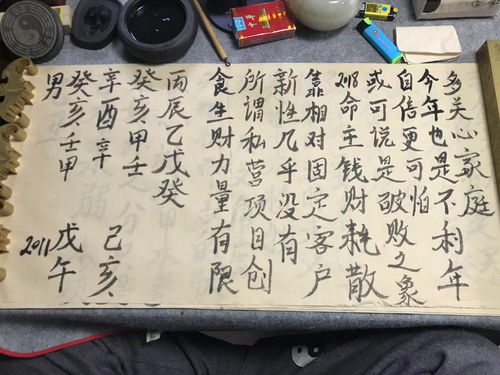 男
癸亥壬甲
2011 戊午
辛酉辛
己亥
癸亥甲壬
丙辰乙戊癸
食生财力量有限
所谓私营项目创
新性几乎没有
靠相对固定客户
2018命主钱财耗散
或可说是破败之象
自信更可怕
今年也是不利年
多关心家庭